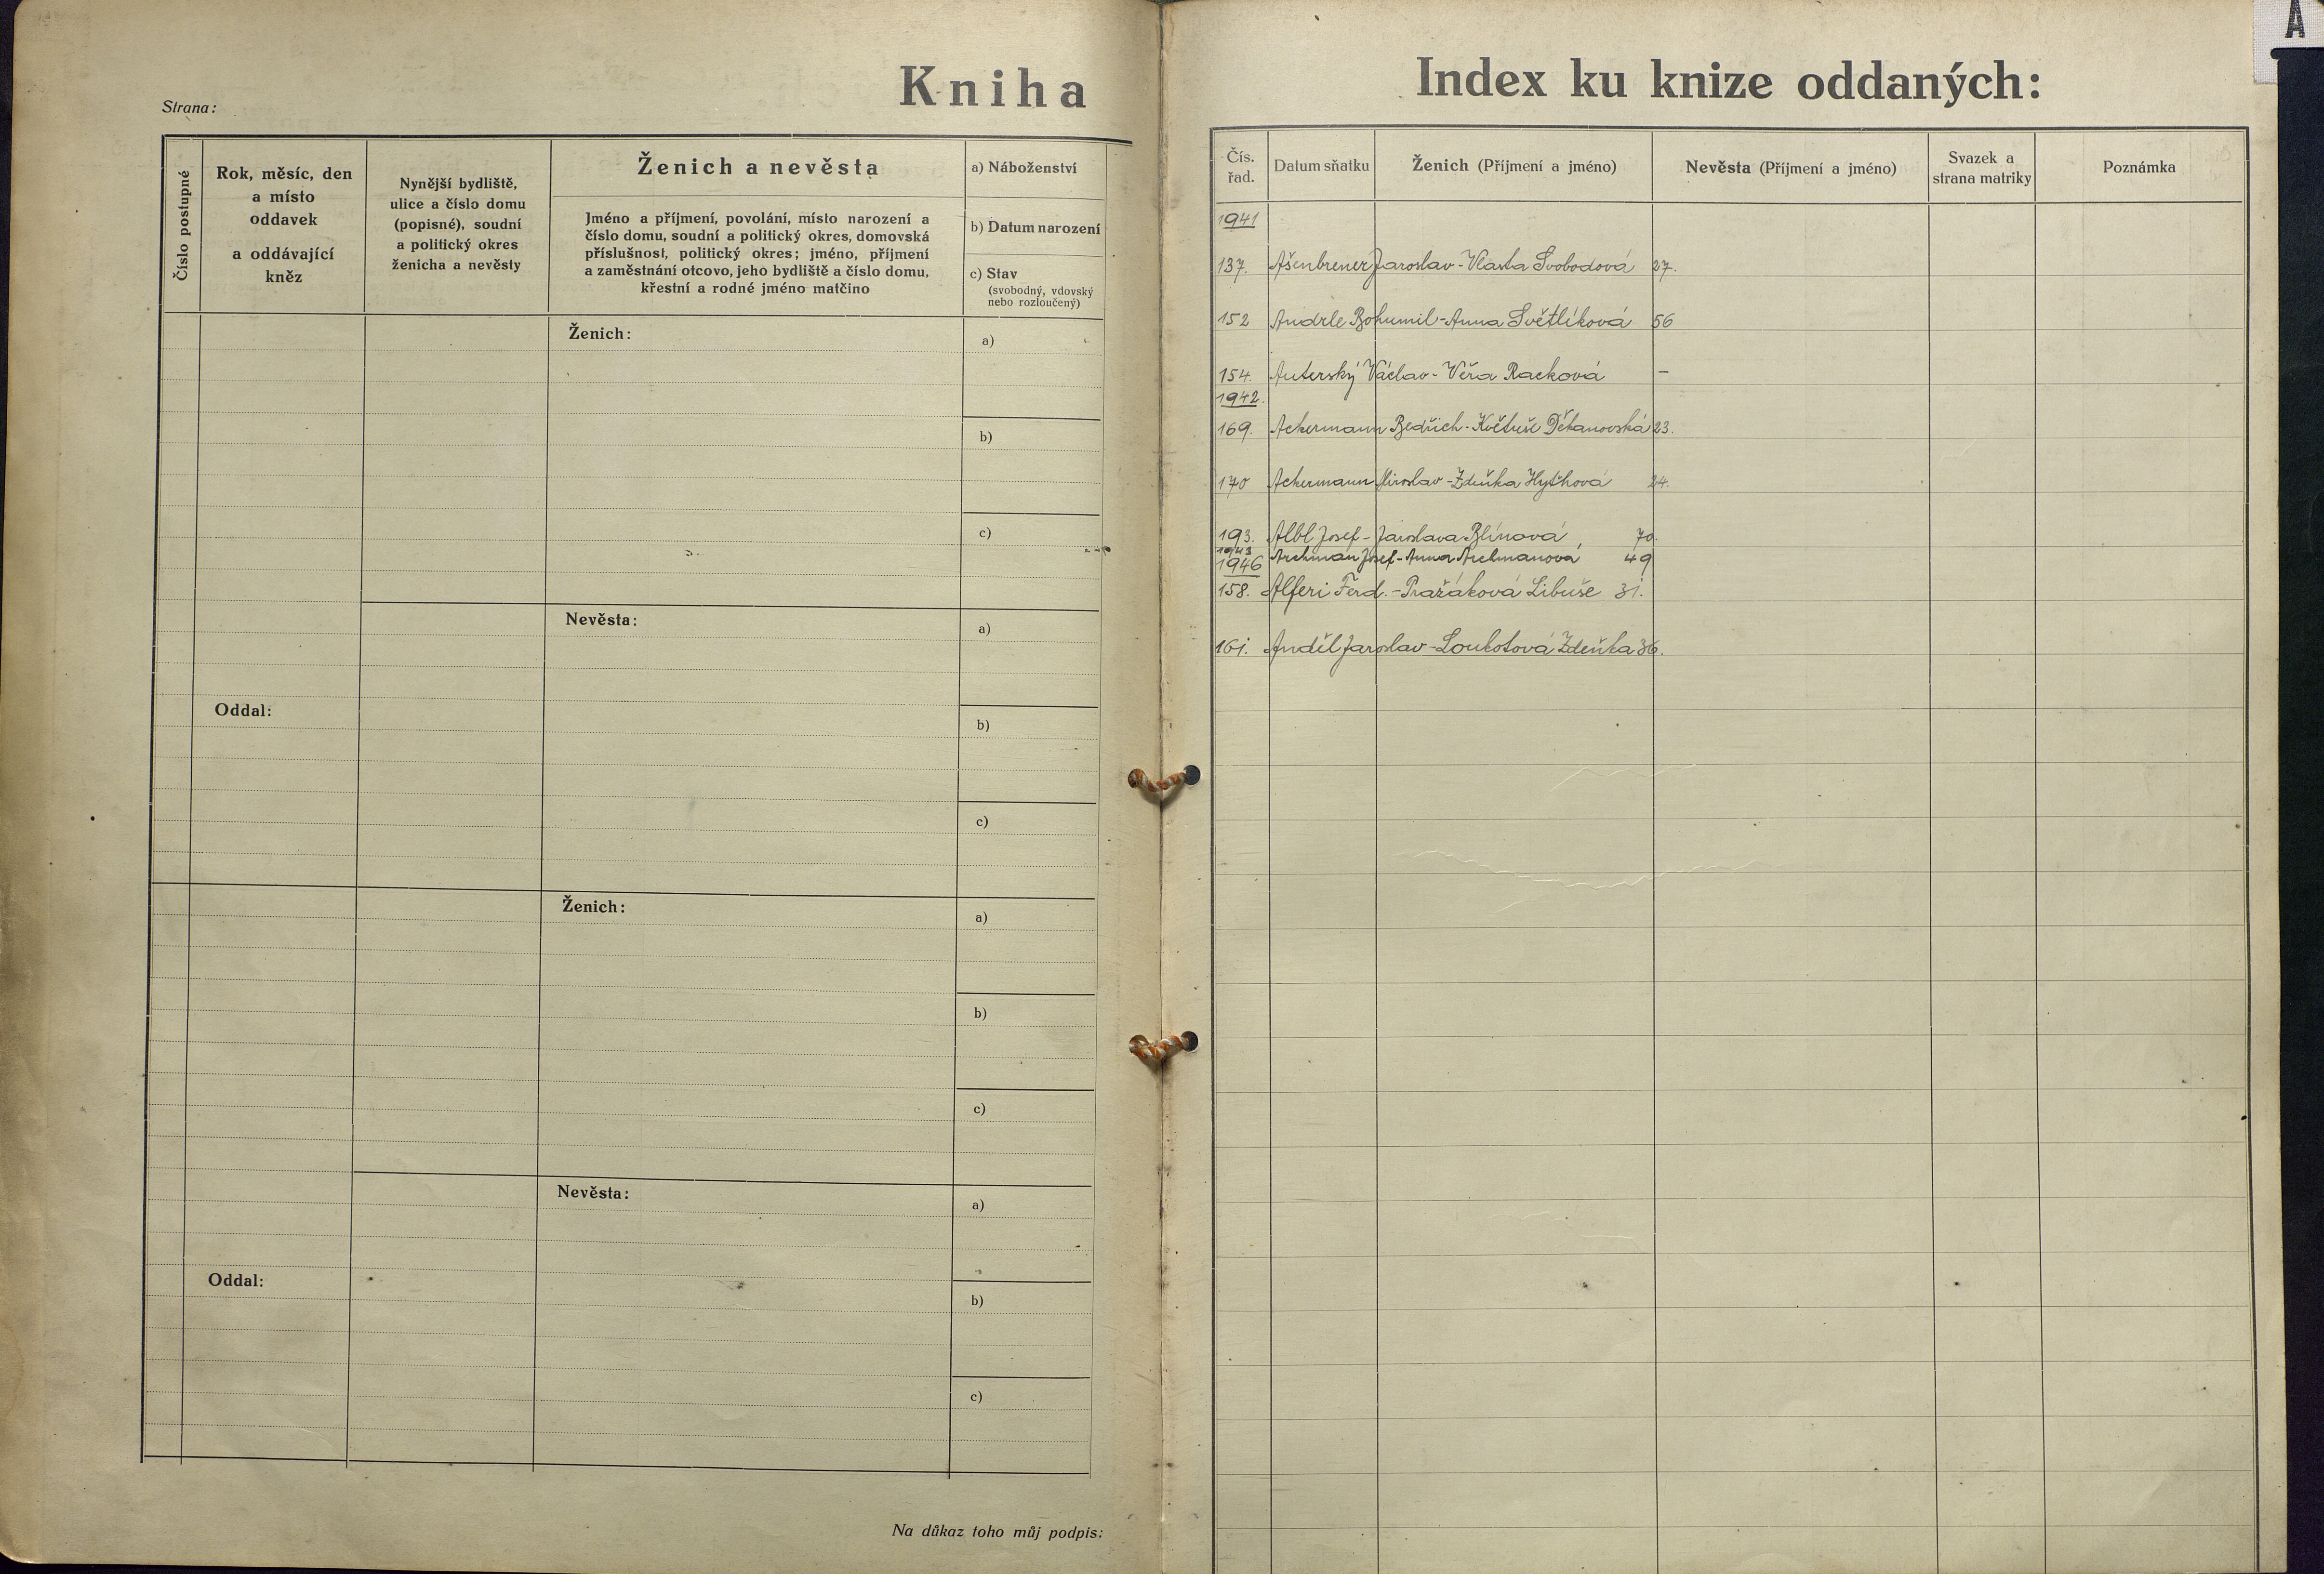 Strana:
Kniha
Číslo postupné
Rok, měsíc, den
a místo
oddavek
a oddávající
kněz
Nynější bydliště,
ulice a číslo domu
(popisné), soudní
a politický okres
ženicha a nevěsty
Ženich a nevěsta
Jméno a příjmení, povolání, místo narození a
číslo domu, soudní a politický okres, domovská
příslušnost, politický okres; jméno, příjmení
a zaměstnání otcovo, jeho bydliště a číslo domu,
křestní a rodné jméno matčino
a) Náboženství
b) Datum narození
c) Stav
(svobodný, vdovský
nebo rozloučený)
Ženich:
a)
b)
c)
Nevěsta:
a)
Oddal:
b)
c)
Ženich:
a)
b)
c)
Nevěsta:
a)
Oddal:
b)
c)
Na důkaz toho můj podpis:
A
Index ku knize oddaných:
Čís.
řad.
Datum sňatku
Ženich (Příjmení a jméno)
Nevěsta (Příjmení a jméno)
Svazek a
strana matriky
Poznámka
1941
137. Ašenbrener Jaroslav - Vlasta Svobodová 27.
152 Andrle Bohumil - Anna Světlíková 56
154. Auterský Václav - Věra Racková –
1942.
169. Ackermann Bedřich - Květuše Děkanovská 23.
170 Ackermann Miroslav - Zdeňka Hythová 24.
193. Albl Josef - Jaroslava Blínová, 70.
1943 Archman Josef - Anna 49
1946
158. Alferi Ferd. - Pražáková Libuše 31.
161. Anděl Jaroslav - Loukotová Zdeňka 36.